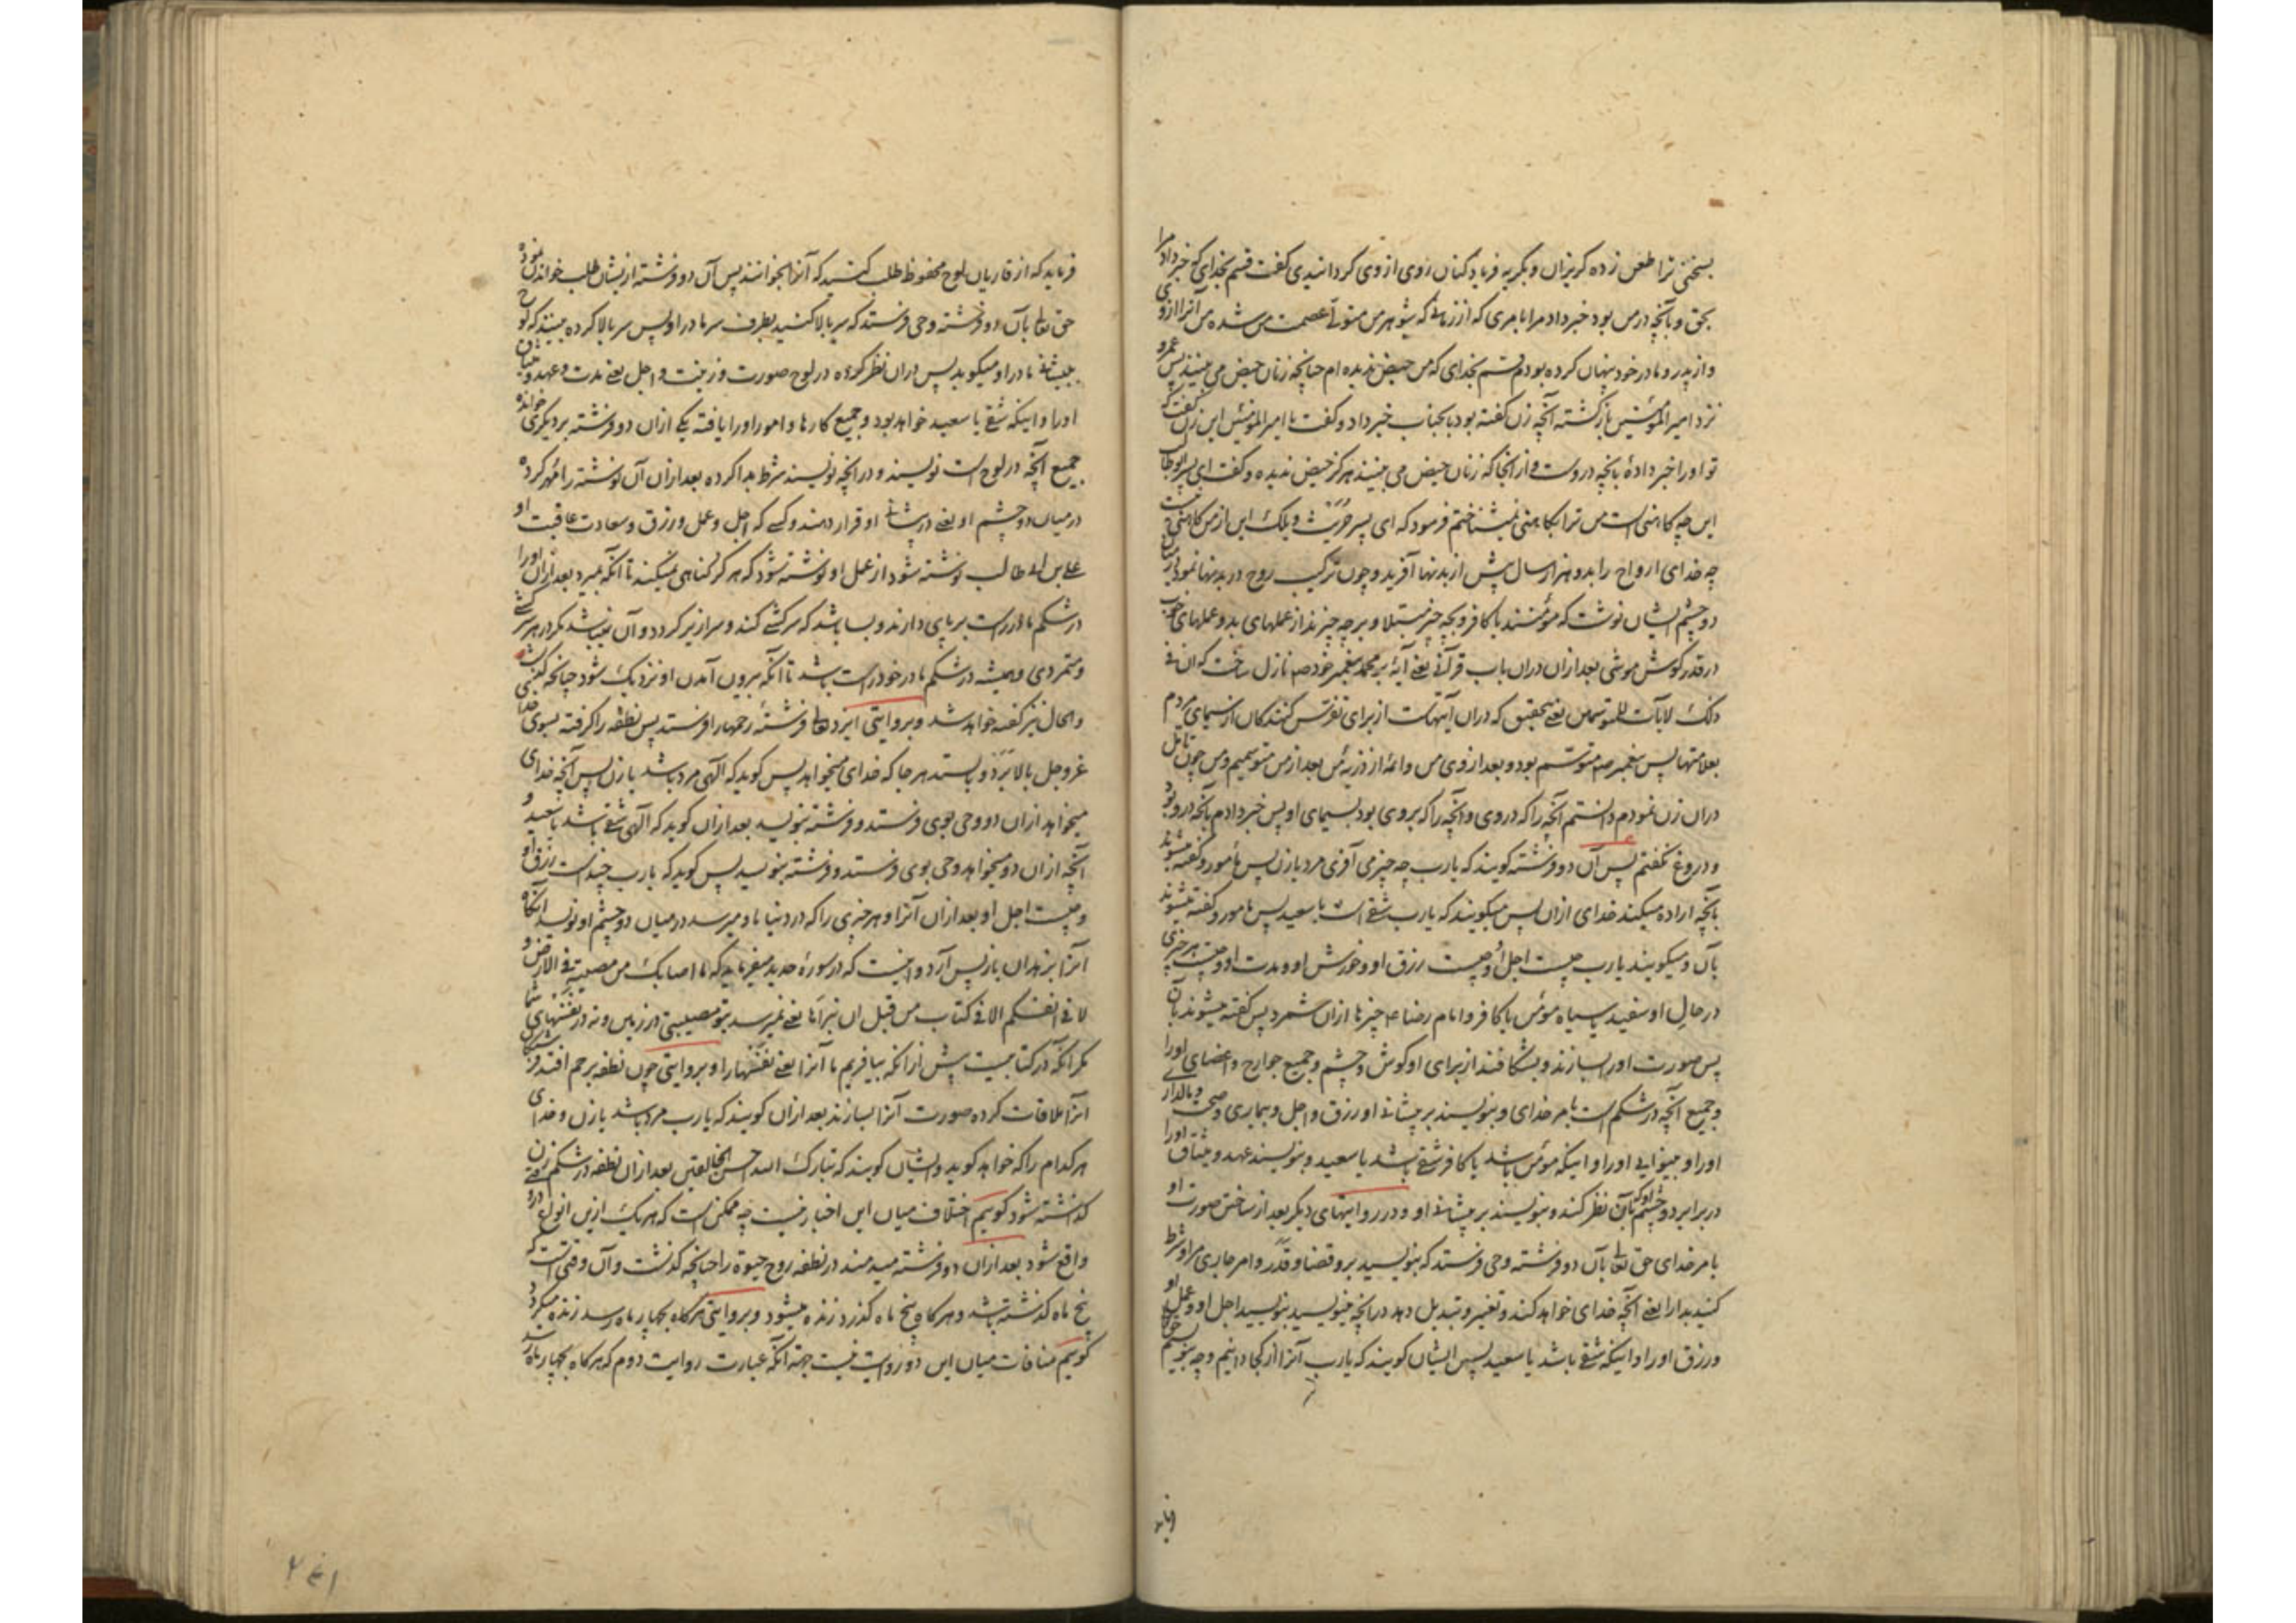 بسخنی ترا طعن زده گریزان و بگریه فریاد کنان روی از وی گردانیدی گفت قسم بخدای که خبر داد مرا
بحق و بآنچه در من بود خبر داد مرا بامری که از زمانی که شوهر من متولی عصمت من شده من آنرا از وی
و از پدر و مادر خود پنهان کرده بودم قسم بخدای که من حیض ندیده ام چنانچه زنان حیض می بینند پس عمرو
نزد امیر المومنین بازگشته آنچه زن گفته بود بآنجناب خبر داد و گفت یا امیر المومنین این زن گفت که
تو او را خبر دادهٔ بآنچه در اوست و از آنجا که زنان حیض می بینند هرگز حیض ندیده و گفت ای پسر ابوطالب
این چه کاهنی است من ترا بکاهنی نمیشناختم فرمود که ای پسر حریث ویلک این از من کاهنی نیست
چه خدای ارواح را بدو هزار سال پیش از بدنها آفرید و چون ترکیب روح در بدنها نمود در میان
دو چشم ایشان نوشت که مؤمنند یا کافر و بچه چیز مبتلا و بر چه چیزند از عملهای بد و عملهای خوب
در قدر گوش موشی بعد ازان دران باب قرآنی یعنی آیهٔ بر محمد پیغمبر خود صم نازل ساخت که ان فی
ذلک لایات للمتوسمین یعنی بتحقیق که دران آیتهاست از برای تفرس کنندگان از سیمای مردم
بعلامتها پس پیغمبر صم متوسم بود و بعد از وی من و ائمه از ذریهٔ من بعد از من متوسمیم و من چون تامل
دران زن نمودم دانستم آنچه را که در وی و آنچه را که بر وی بود بسیمای او پس خبر دادم بآنچه در او بود
و دروغ نگفتم پس آن دو فرشته گویند که یارب چه چیز می آفری مرد یا زن پس مأمور و گفته میشوند
بآنچه اراده میکند خدای ازان پس میگویند که یارب شقی است یا سعید پس مامور و گفته میشوند
بآن و میگویند یارب چیست اجل او و چیست رزق او و خورش او و مدت او و چیست هر چیزی
در حال او سفید یا سیاه مؤمن یا کافر و امام رضا ع چیزها ازان شمرد پس گفته میشوند بآن
پس صورت او را بسازند و بشکافند از برای او گوش و چشم و جمیع جوارح و اعضای او را
و جمیع آنچه در شکم است بامر خدای و بنویسند بر پیشانی او رزق و اجل و بیماری و صحت و مالداری
او را و بینوایی او را و اینکه مؤمن باشد یا کافر شقی باشد یا سعید و بنویسند عهد و میثاق او را
در برابر دو چشم او که بآن نظر کند و بنویسند بر پیشانی او و در روایتهای دیگر بعد از ساختن صورت او
بامر خدای حق تعالی بآن دو فرشته وحی فرستد که بنویسید برو قضا و قدر و امر جاری مرا و شرط
کنید بدا را یعنی آنچه خدای خواهد کند و تغییر و تبدیل دهد در آنچه مینویسید بنویسید اجل او و عمل او
و رزق او را و اینکه شقی باشد یا سعید پس ایشان گویند که یارب آنرا از کجا دانیم و چه بنویسیم
فرماید که از قاریان لوح محفوظ طلب کنید که آنرا بخوانند پس آن دو فرشته ازیشان طلب خواندن نموده
حق تعالی بآن دو فرشته وحی فرستد که سر بالا کنید بطرف سر مادر او پس سر بالا کرده ببینند که لوح
پیشانی مادر او میکوبد پس دران نظر کرده در لوح صورت و زینت و اجل یعنی مدت و عهد و میثاق
او را و اینکه شقی یا سعید خواهد بود و جمیع کارها و امور او را یافته یکی ازان دو فرشته بر دیگری خوانده
جمیع آنچه در لوح است نویسند و در آنچه نویسند شرط بدا کرده بعد ازان آن نوشته را مهر کرده
در میان دو چشم او یعنی در پیشانی او قرار دهند و کسی که اجل و عمل و رزق و سعادت عاقبت او
علی بن ابی طالب نوشته شود از عمل او نوشته شود که هرگز گناهی نمیکند تا آنکه بمیرد بعد ازان او را
در شکم مادر راست بر پای دارند و بسا باشد که سرکشی کند و سرازیر گردد و آن نمیباشد مگر در هر سرکشی
و متمردی و همیشه در شکم مادر خود راست باشد تا آنکه بیرون آمدن او نزدیک شود چنانچه گفته
و الحال نیز گفته خواهد شد و بروایتی ایزد تعالی فرشتهٔ رحمها را فرستد پس نطفه را گرفته بسوی خدا
عزوجل بالا برد و بایستد هر جا که خدای میخواهد پس گوید که الهی مرد باشد یا زن پس آنچه خدای
میخواهد ازان دو وحی بوی فرستد و فرشته بنویسد بعد ازان گوید که الهی شقی باشد یا سعید و
آنچه ازان دو میخواهد وحی بوی فرستد و فرشته بنویسد پس گوید که یارب چیست رزق او
و چیست اجل او بعد ازان آنرا و هر چیزی را که در دنیا باو میرسد در میان دو چشم او نویسد آنگاه
آنرا بزهدان باز پس آرد و اینست که در سورهٔ حدید میفرماید که ما اصابک من مصیبة فی الارض و
لا فی انفسکم الا فی کتاب من قبل ان نبرأها یعنی نمیرسد بتو مصیبتی در زمین و نه در نفسهای شما
مگر آنکه در کتابیست پیش ازانکه بیافریم ما آنرا یعنی نفسها را و بروایتی چون نطفه برحم افتد فرشتگان
آنرا ملاقات کرده صورت آنرا بسازند بعد ازان گویند که یارب مرد باشد یا زن و خدای
هر کدام را که خواهد گوید و ایشان گویند که تبارک الله احسن الخالقین بعد ازان نطفه در شکم زن
گذاشته شود گوییم اختلاف میان این اخبار نیست چه ممکن است که هر یک ازین انواع در
واقع شود بعد ازان دو فرشته میدمند در نطفه روح حیوة را چنانچه گذشت و آن وقتی است که
پنج ماه گذشته باشد و هر گاه پنج ماه گذرد زنده میشود و بروایتی هر گاه بچهار ماه رسد زنده میگردد
گوییم منافات میان این دو روایت نیست جهة آنکه عبارت روایت دوم که هر گاه بچهار ماه رسد